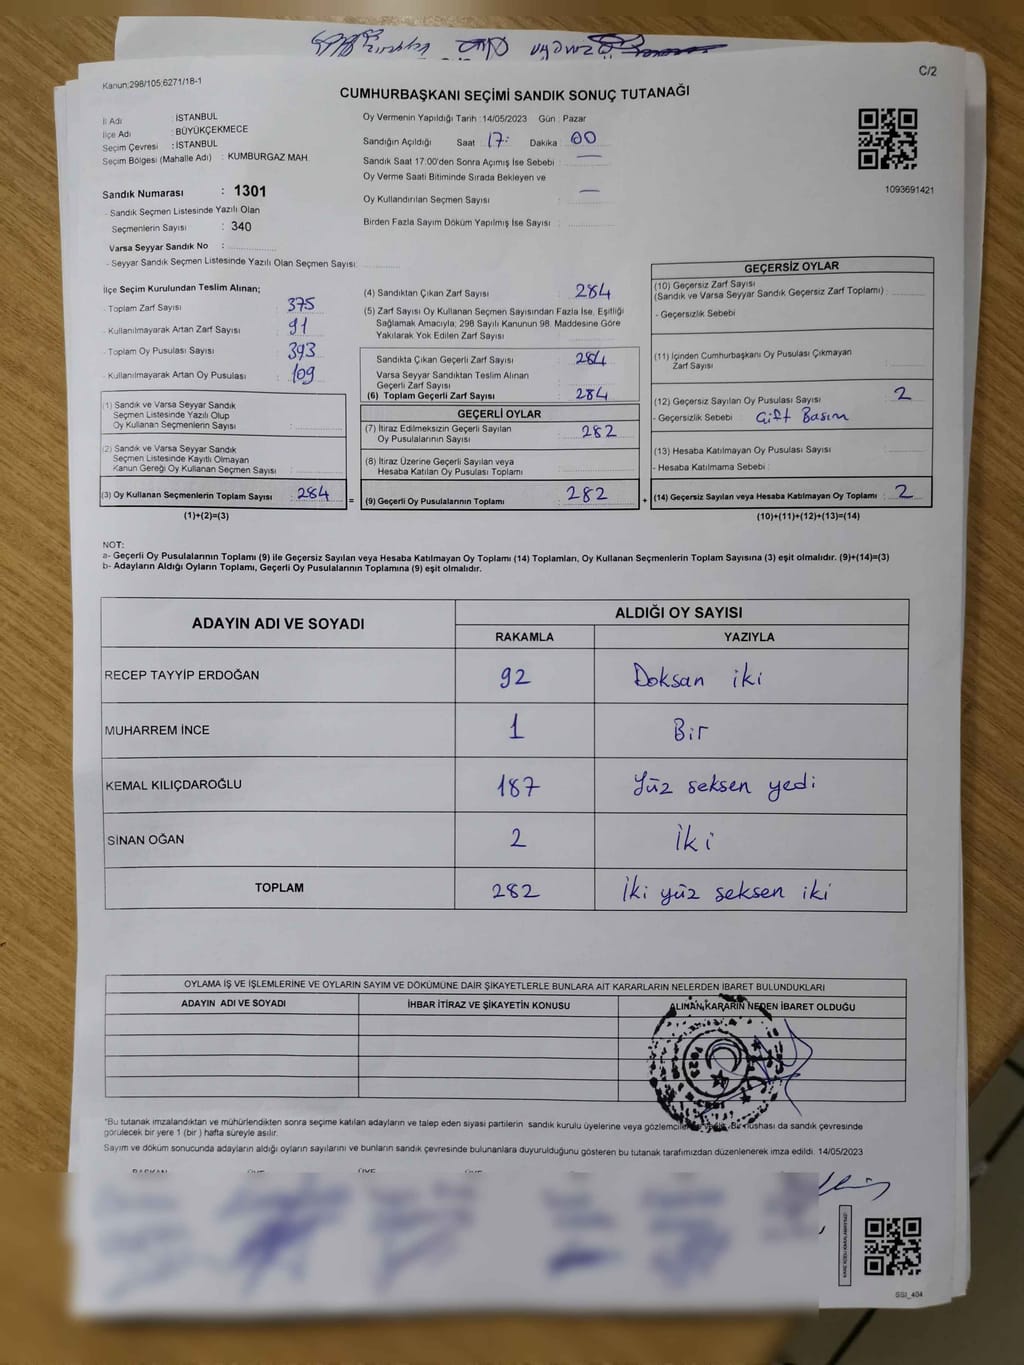 Kanun;298/105;6271/18-1
C/2
CUMHURBAŞKANI SEÇİMİ SANDIK SONUÇ TUTANAĞI
İl Adı : İSTANBUL
İlçe Adı : BÜYÜKÇEKMECE
Seçim Çevresi : İSTANBUL
Seçim Bölgesi (Mahalle Adı) : KUMBURGAZ MAH.
Sandık Numarası : 1301
- Sandık Seçmen Listesinde Yazılı Olan
Seçmenlerin Sayısı : 340
Varsa Seyyar Sandık No :
- Seyyar Sandık Seçmen Listesinde Yazılı Olan Seçmen Sayısı:
Oy Vermenin Yapıldığı Tarih : 14/05/2023 Gün : Pazar
Sandığın Açıldığı Saat 17: Dakika 00
Sandık Saat 17:00'den Sonra Açımış İse Sebebi : —
Oy Verme Saati Bitiminde Sırada Bekleyen ve
Oy Kullandırılan Seçmen Sayısı : —
Birden Fazla Sayım Döküm Yapılmış İse Sayısı :
1093691421
İlçe Seçim Kurulundan Teslim Alınan;
- Toplam Zarf Sayısı : 375
- Kullanılmayarak Artan Zarf Sayısı : 91
- Toplam Oy Pusulası Sayısı : 393
- Kullanılmayarak Artan Oy Pusulası : 109
(1) Sandık ve Varsa Seyyar Sandık
Seçmen Listesinde Yazılı Olup
Oy Kullanan Seçmenlerin Sayısı :
(2) Sandık ve Varsa Seyyar Sandık
Seçmen Listesinde Kayıtlı Olmayan
Kanun Gereği Oy Kullanan Seçmen Sayısı :
(3) Oy Kullanan Seçmenlerin Toplam Sayısı : 284
(1)+(2)=(3)
=
(4) Sandıktan Çıkan Zarf Sayısı : 284
(5) Zarf Sayısı Oy Kullanan Seçmen Sayısından Fazla İse, Eşitliği
Sağlamak Amacıyla; 298 Sayılı Kanunun 98. Maddesine Göre
Yakılarak Yok Edilen Zarf Sayısı :
Sandıkta Çıkan Geçerli Zarf Sayısı : 284
Varsa Seyyar Sandıktan Teslim Alınan
Geçerli Zarf Sayısı :
(6) Toplam Geçerli Zarf Sayısı : 284
GEÇERLİ OYLAR
(7) İtiraz Edilmeksizin Geçerli Sayılan
Oy Pusulalarının Sayısı : 282
(8) İtiraz Üzerine Geçerli Sayılan veya
Hesaba Katılan Oy Pusulası Toplamı :
(9) Geçerli Oy Pusulalarının Toplamı : 282
+
GEÇERSİZ OYLAR
(10) Geçersiz Zarf Sayısı
(Sandık ve Varsa Seyyar Sandık Geçersiz Zarf Toplamı) :
- Geçersizlik Sebebi
(11) İçinden Cumhurbaşkanı Oy Pusulası Çıkmayan
Zarf Sayısı :
(12) Geçersiz Sayılan Oy Pusulası Sayısı : 2
- Geçersizlik Sebebi : Çift Basım
(13) Hesaba Katılmayan Oy Pusulası Sayısı :
- Hesaba Katılmama Sebebi :
(14) Geçersiz Sayılan veya Hesaba Katılmayan Oy Toplamı : 2
(10)+(11)+(12)+(13)=(14)
NOT:
a- Geçerli Oy Pusulalarının Toplamı (9) ile Geçersiz Sayılan veya Hesaba Katılmayan Oy Toplamı (14) Toplamları, Oy Kullanan Seçmenlerin Toplam Sayısına (3) eşit olmalıdır. (9)+(14)=(3)
b- Adayların Aldığı Oyların Toplamı, Geçerli Oy Pusulalarının Toplamına (9) eşit olmalıdır.
ADAYIN ADI VE SOYADI ALDIĞI OY SAYISI
RAKAMLA YAZIYLA
RECEP TAYYİP ERDOĞAN 92 Doksan iki
MUHARREM İNCE 1 Bir
KEMAL KILIÇDAROĞLU 187 Yüz seksen yedi
SİNAN OĞAN 2 İki
TOPLAM 282 İki yüz seksen iki
OYLAMA İŞ VE İŞLEMLERİNE VE OYLARIN SAYIM VE DÖKÜMÜNE DAİR ŞİKAYETLERLE BUNLARA AİT KARARLARIN NELERDEN İBARET BULUNDUKLARI
ADAYIN ADI VE SOYADI İHBAR İTİRAZ VE ŞİKAYETİN KONUSU ALINAN KARARIN NEDEN İBARET OLDUĞU
*Bu tutanak imzalandıktan ve mühürlendikten sonra seçime katılan adayların ve talep eden siyasi partilerin sandık kurulu üyelerine veya gözlemcilerine Bir nüshası da sandık çevresinde
görülecek bir yere 1 (bir ) hafta süreyle asılır.
Sayım ve döküm sonucunda adayların aldığı oyların sayılarını ve bunların sandık çevresinde bulunanlara duyurulduğunu gösteren bu tutanak tarafımızdan düzenlenerek imza edildi. 14/05/2023
BAŞKAN ÜYE ÜYE ÜYE
SSI_404